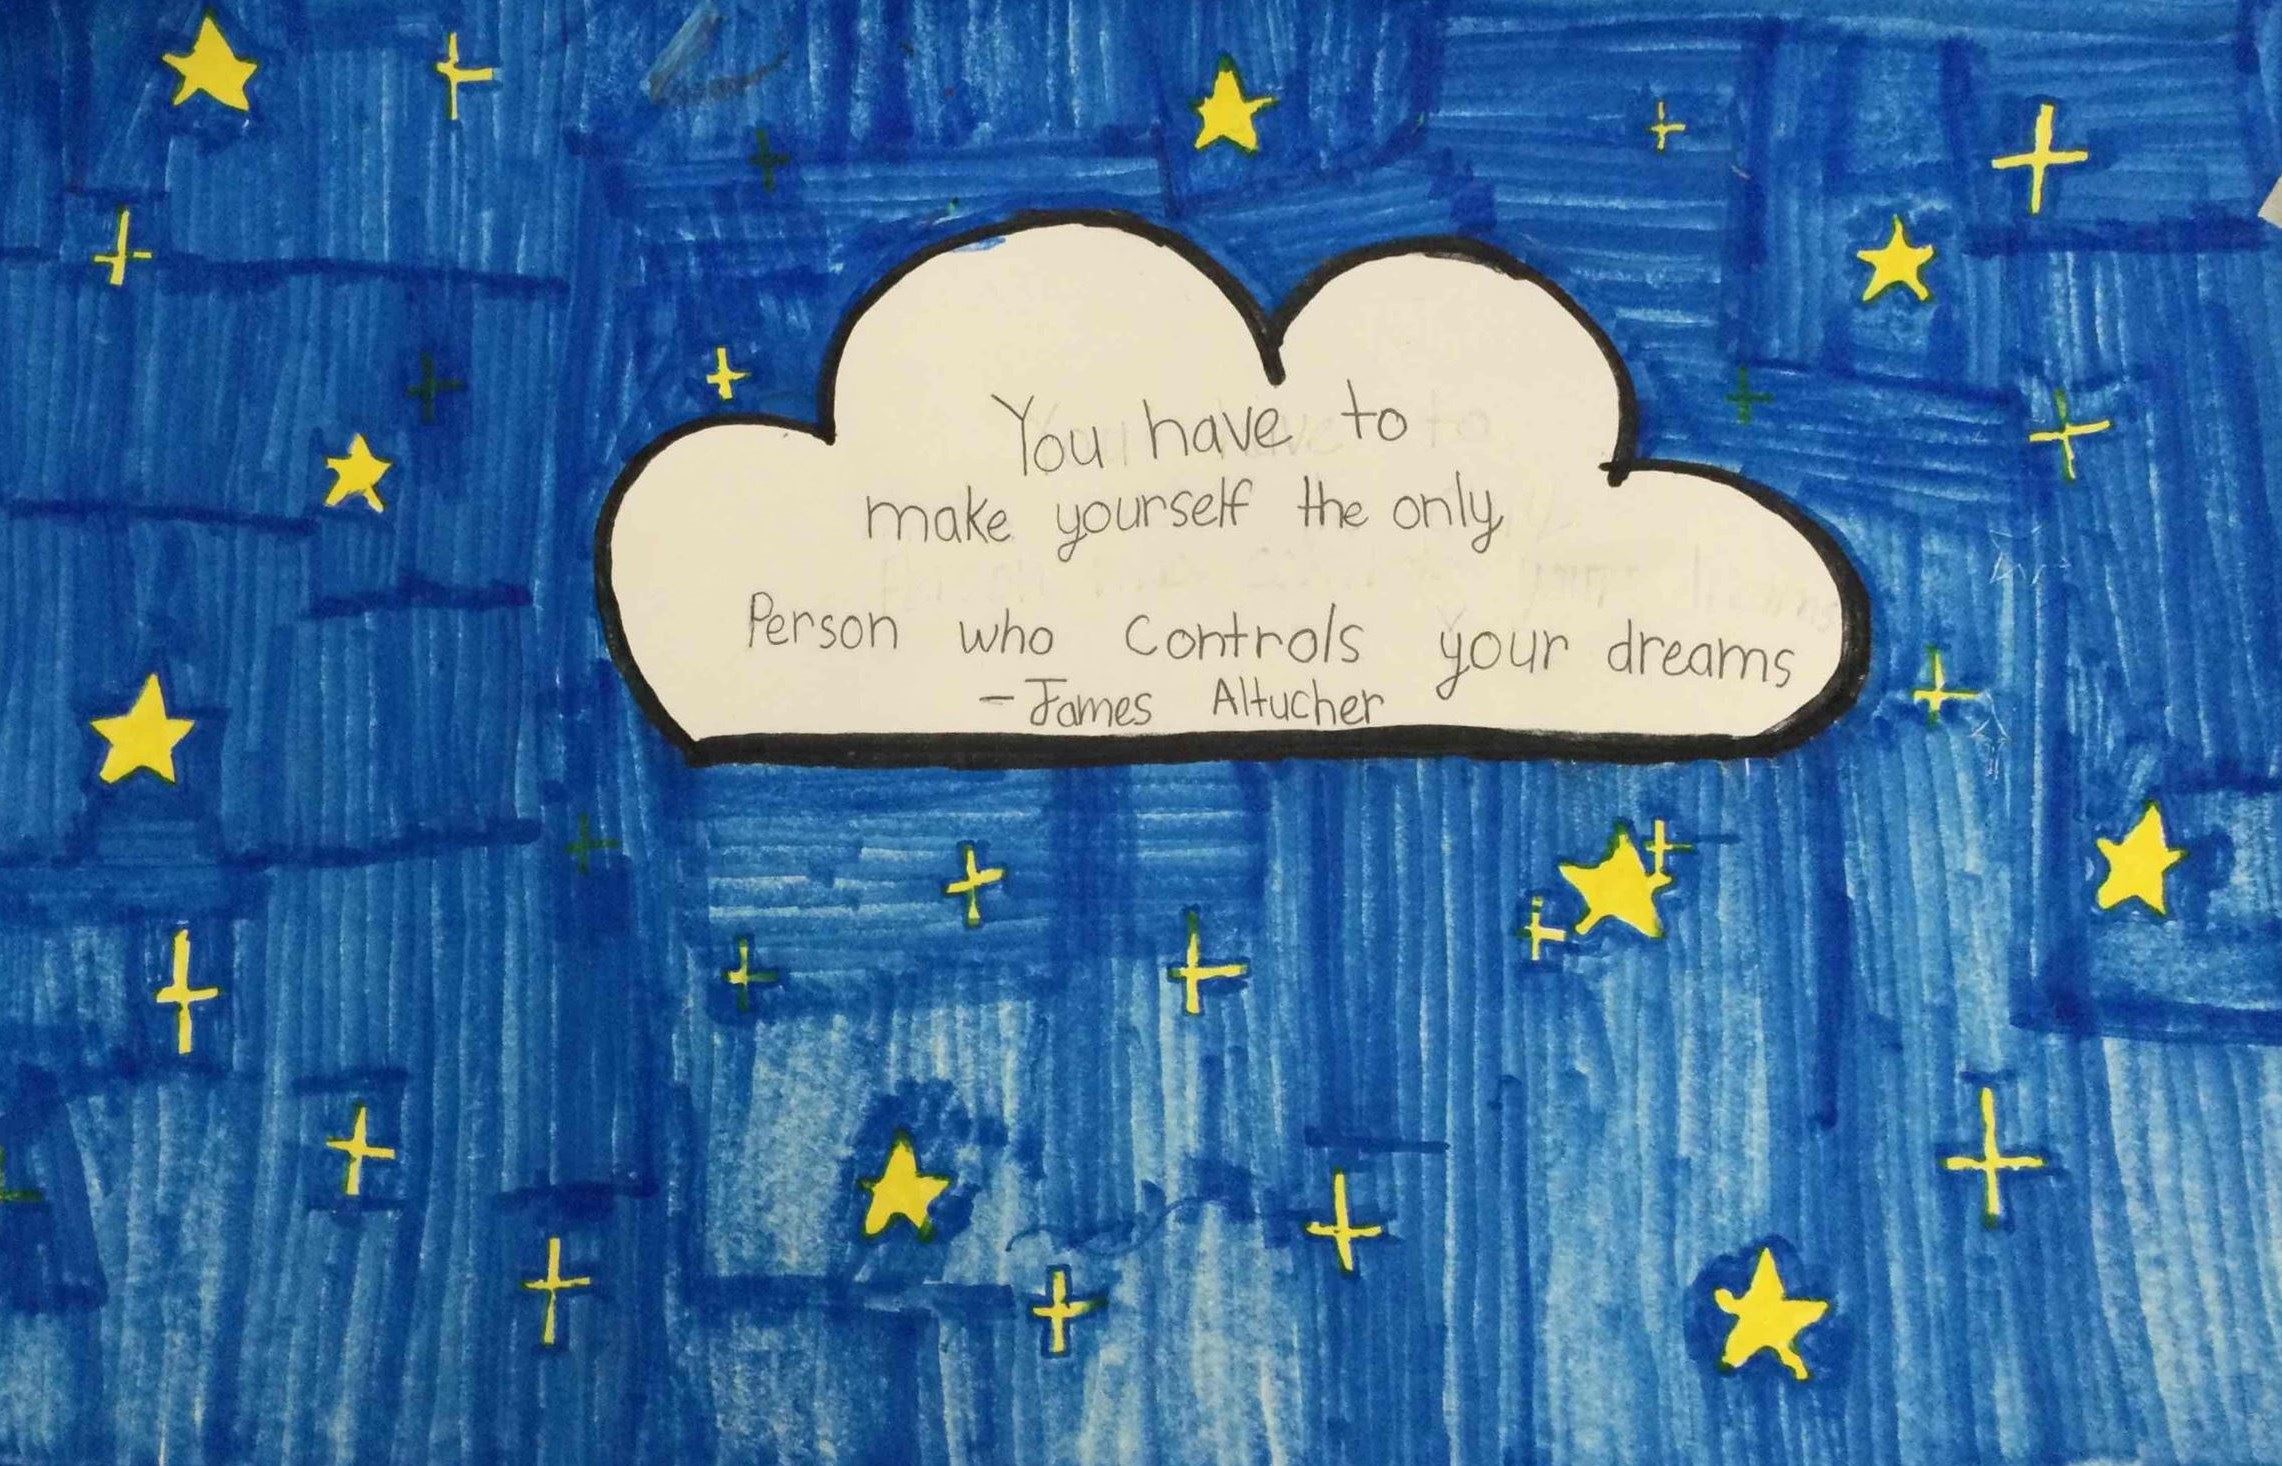 You have to
make yourself the only
Person who controls your dreams
- James Altucher